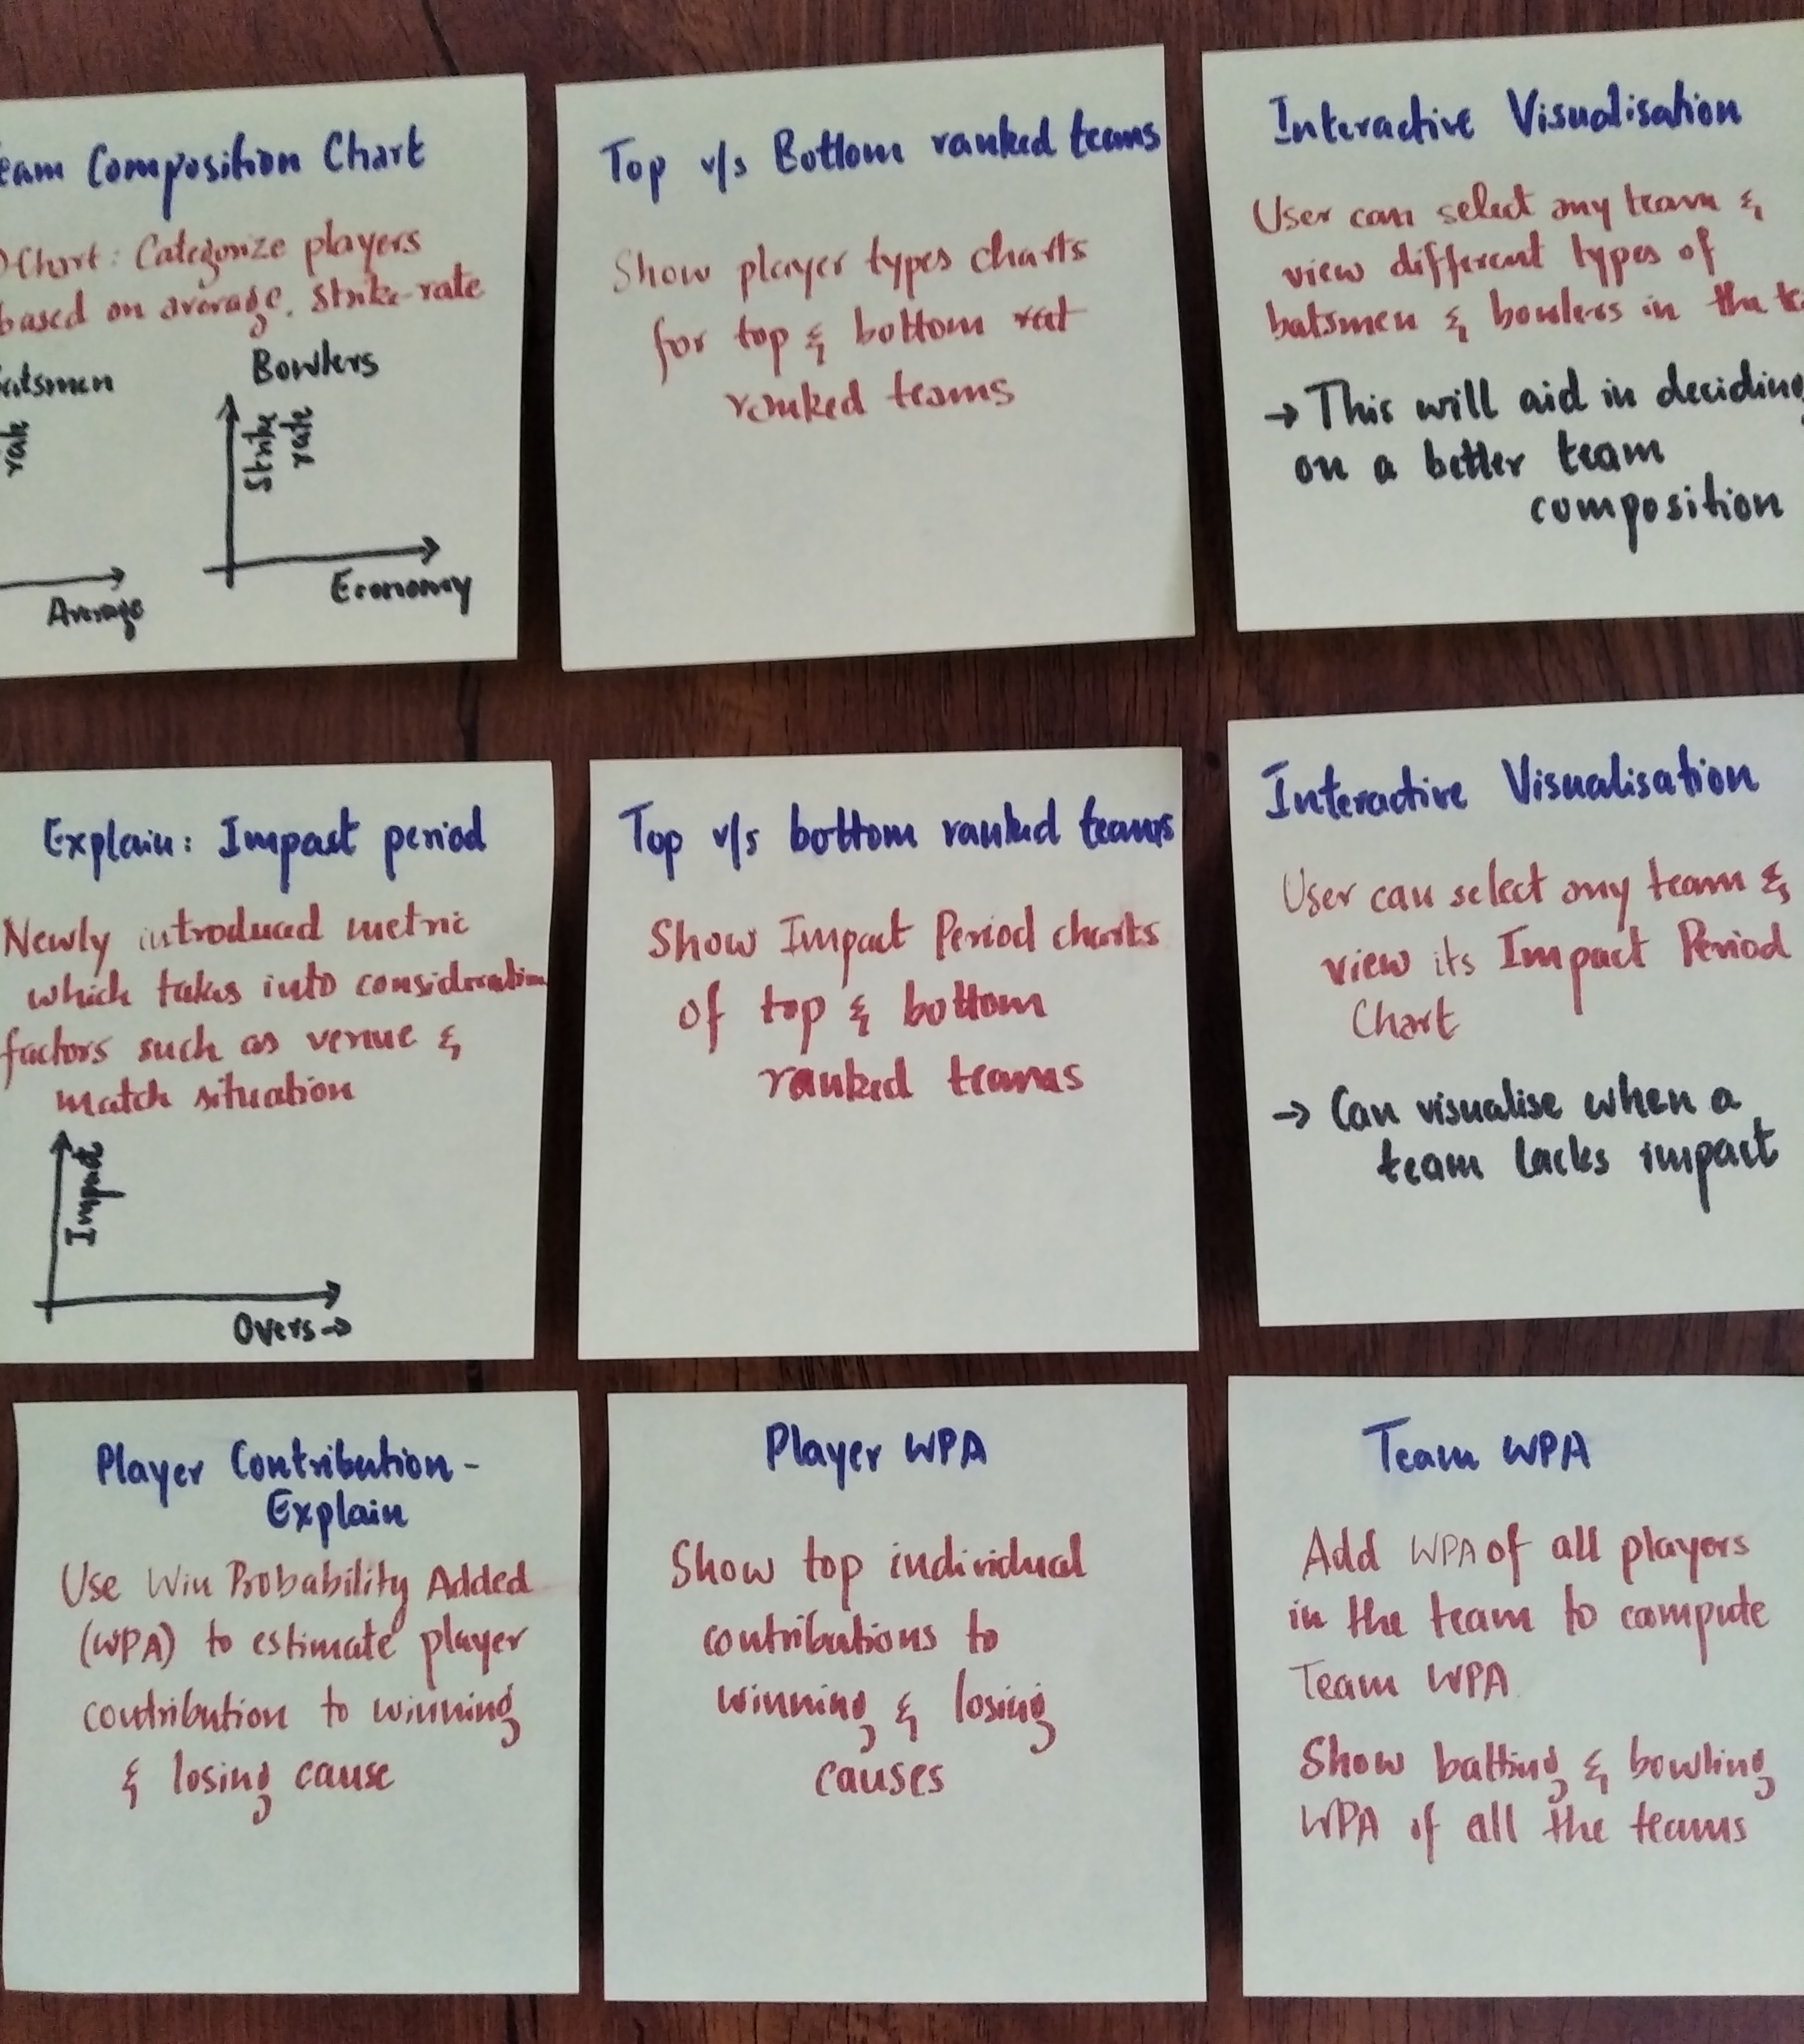 eam Composition Chart
Chart: Categorize players
based on average, strike-rate
atsmen
rate
Average
Bowlers
Strike
rate
Economy
Top v/s Bottom ranked teams
Show player types charts
for top & bottom rat
ranked teams
Interactive Visualisation
User can select any team &
view different types of
batsmen & bowlers in the te
→ This will aid in deciding
on a better team
composition
Explain: Impact period
Newly introduced metric
which takes into consideration
factors such as venue &
match situation
Impact
Overs→
Top v/s bottom ranked teams
Show Impact Period charts
of top & bottom
ranked teams
Interactive Visualisation
User can select any team &
view its Impact Period
Chart
→ Can visualise when a
team lacks impact
Player Contribution -
Explain
Use Win Probability Added
(WPA) to estimate player
contribution to winning
& losing cause
Player WPA
Show top individual
contributions to
winning & losing
causes
Team WPA
Add WPA of all players
in the team to compute
Team WPA
Show batting & bowling
WPA of all the teams